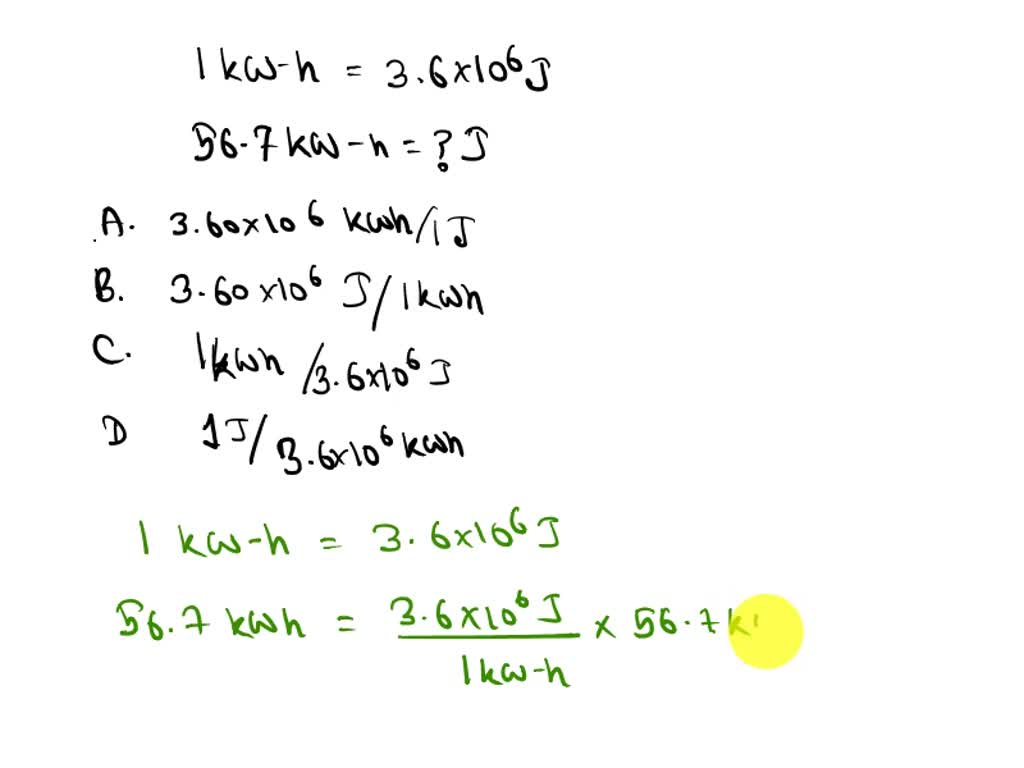 1 kw-h = 3.6×10⁶ J
56.7 kw-h = ? J
A. 3.60×10⁶ kwh/1J
B. 3.60×10⁶ J/1kwh
C. 1kwh/3.6×10⁶ J
D 1J/3.6×10⁶ kwh
1 kw-h = 3.6×10⁶ J
56.7 kwh = 3.6×10⁶ J × 56.7 k
1kw-h